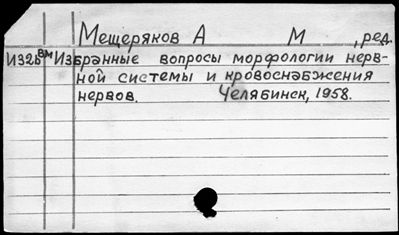 Мещеряков А М ,ред.
И32б ВМ Избранные вопросы морфологии нерв-
ной системы и кровоснабжения
нервов. Челябинск, 1958.